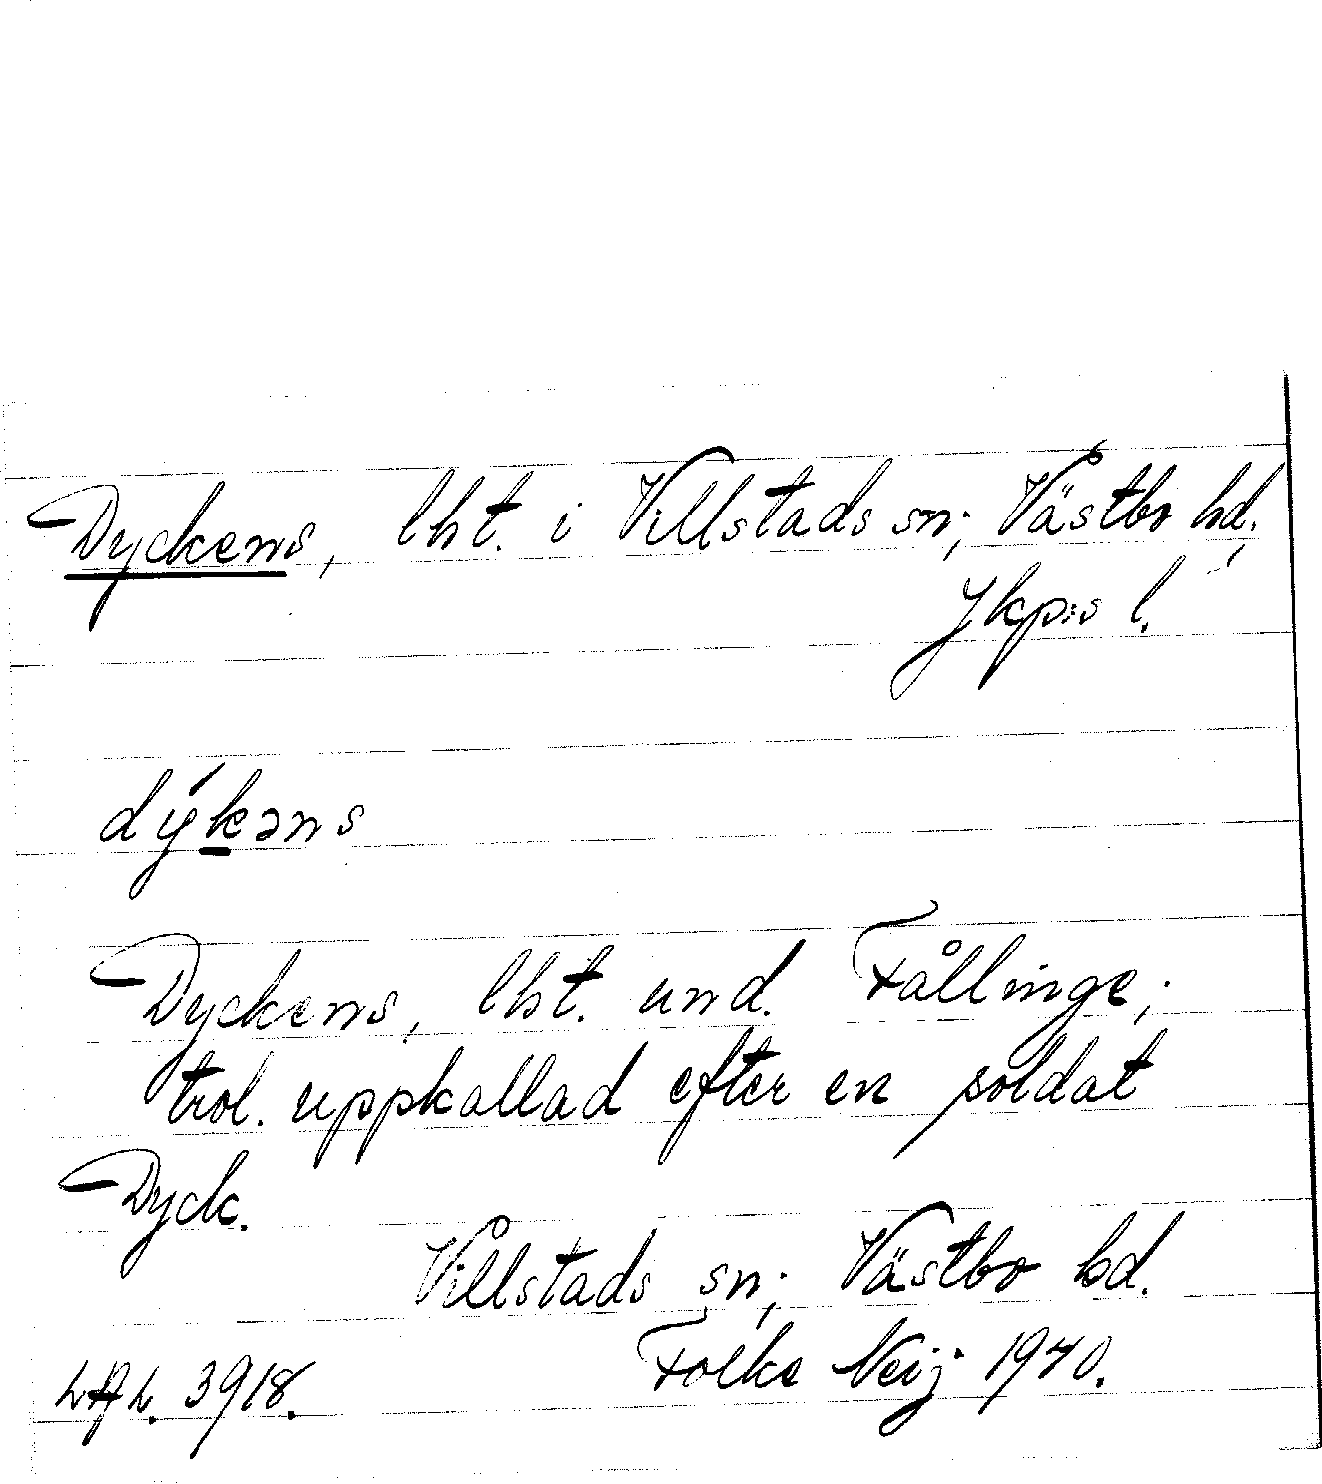 Dyckens, lht. i Villstads sn; Västbo hd.,
Jkp:s l.
dýkəns
Dyckens, lht. und. Fållinge;
trol. uppkallad efter en soldat
Dyck.
Villstads sn; Västbo hd.
Folke Neij 1940.
3918.